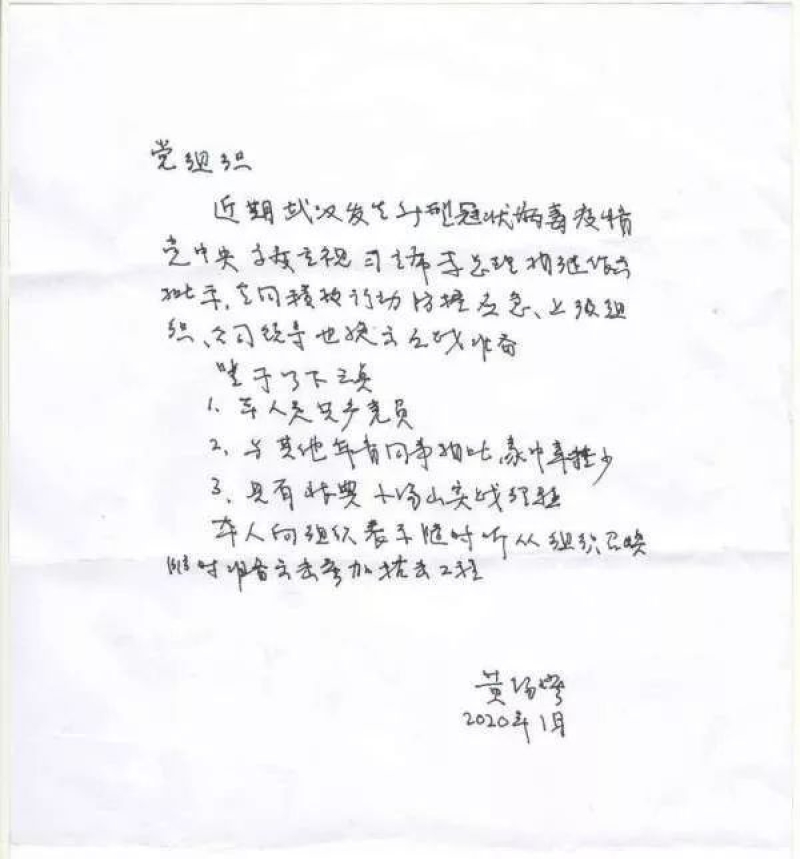 党组织
近期武汉发生新型冠状病毒疫情
党中央高度重视 习主席 李总理相继作出
批示,全国积极行动防控应急、上级组
织、公司领导也换文应战准备
鉴于以下三点
1、本人是共产党员
2、与其他年青同事相比,家中牵挂少
3、具有非典小汤山实战经验
本人向组织表示随时听从组织召唤
随时准备出击参加抗击工程
黄锡璆
2020年1月